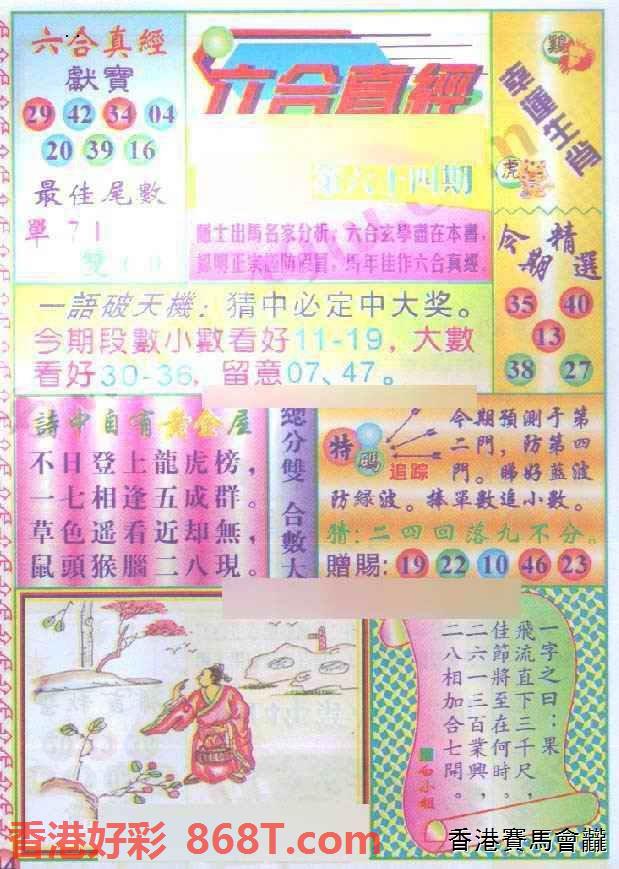 六合真經
獻寶
29 42 34 04
20 39 16
最佳尾數
單 71
雙
六合真經
第六十四期
隱士出馬名家分析，六合玄學盡在本書，
鄭明正宗謹防假冒，馬年佳作六合真經
鷄
幸運生肖
虎
今期
精選
35 40
13
38 27
一語破天機：猜中必定中大奖。
今期段數小數看好11-19，大數
看好30-36，留意07、47。
詩中自有黃金屋
不日登上龍虎榜，
一七相逢五成群。
草色遥看近却無，
鼠頭猴腦二八現。
總分雙 合數大
特碼
追踪
今期預測于第
二門，防第四
門。睇好藍波
防緑波。捧單數追小數。
猜：二四回落九不分。
贈賜：19 22 10 46 23
一字之曰：果
飛流直下三千尺，
佳節將至在何時。
二六一三百業興，
二八相加合七開。
白小姐
香港好彩 868T.com
香港賽馬會